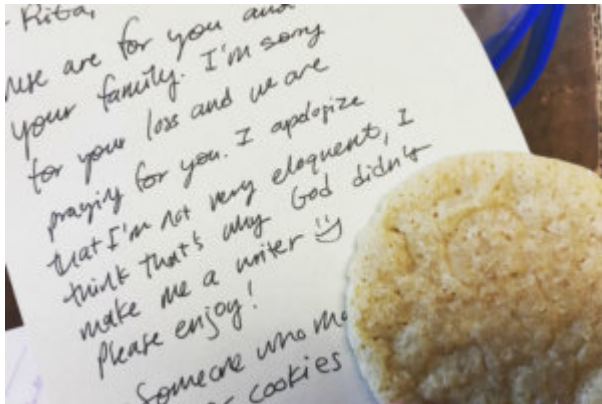 Rita,
are for you and
your family. I'm sorry
for your loss and we are
praying for you. I apologize
that I'm not very eloquent, I
think that's why God didn't
make me a writer
Please enjoy!
Someone who
cookies